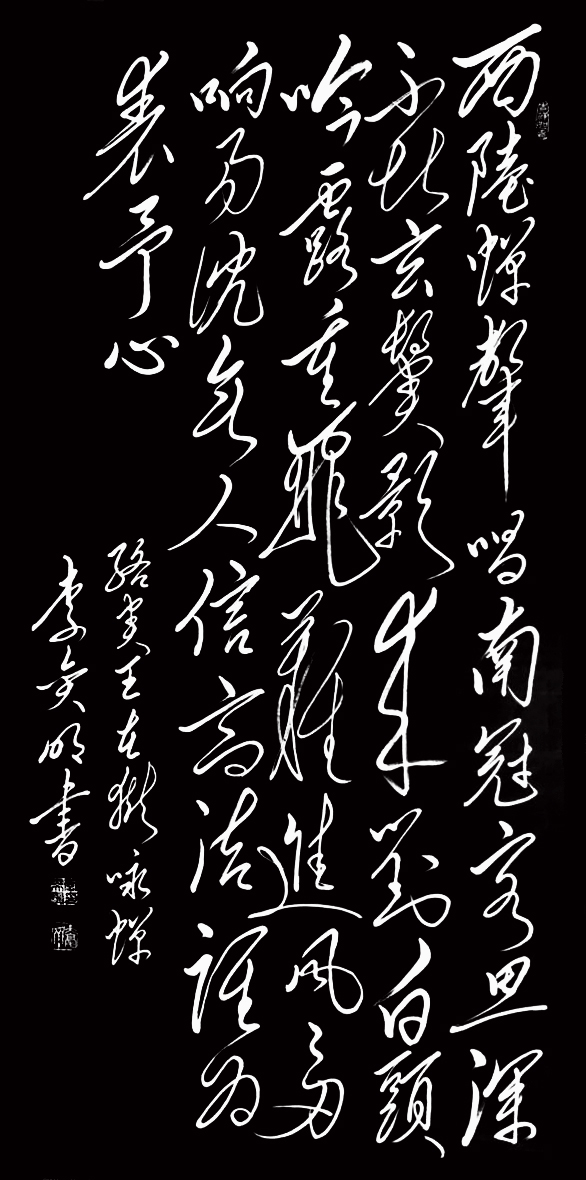 西陸蟬聲唱南冠客思深
不堪玄鬢影來對白頭
吟露重飛難進風多
响易沈無人信高洁誰為
表予心
駱賓王在獄咏蟬
李 明書